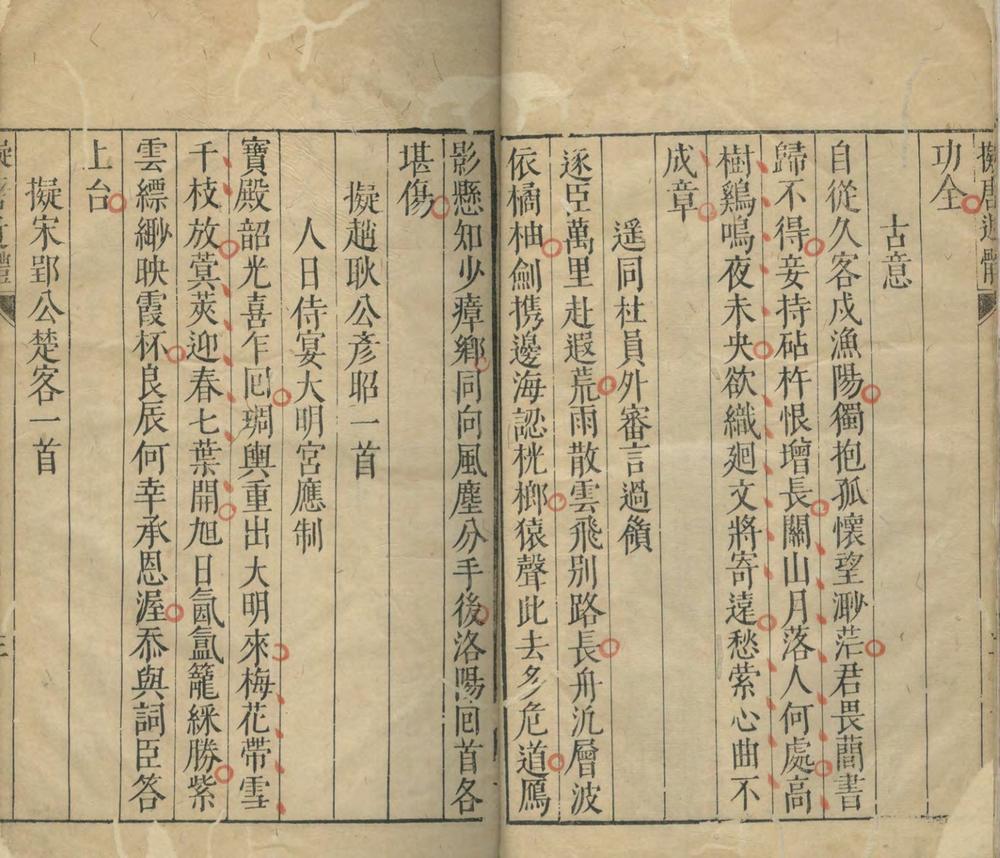 擬唐近體
功全
古意
自從久客戍漁陽獨抱孤懷望渺茫君畏蕳書
歸不得妾持砧杵恨增長關山月落人何處高
樹鷄鳴夜未央欲織廻文將寄遠愁縈心曲不
成章
遥同杜員外審言過嶺
逐臣萬里赴遐荒雨散雲飛别路長舟泝層波
依橘柚劍携邊海認桄榔猿聲此去多危道鴈
影懸知少瘴鄉同向風塵分手後洛陽回首各
堪傷
擬趙耿公彦昭一首
人日侍宴大明宮應制
寶殿韶光喜乍囘琱輿重出大明來梅花帶雪
千枝放蓂莢迎春七葉開旭日氤氲籠綵勝紫
雲縹緲映霞杯良辰何幸承恩渥忝與詞臣答
上台
擬宋郢公楚客一首